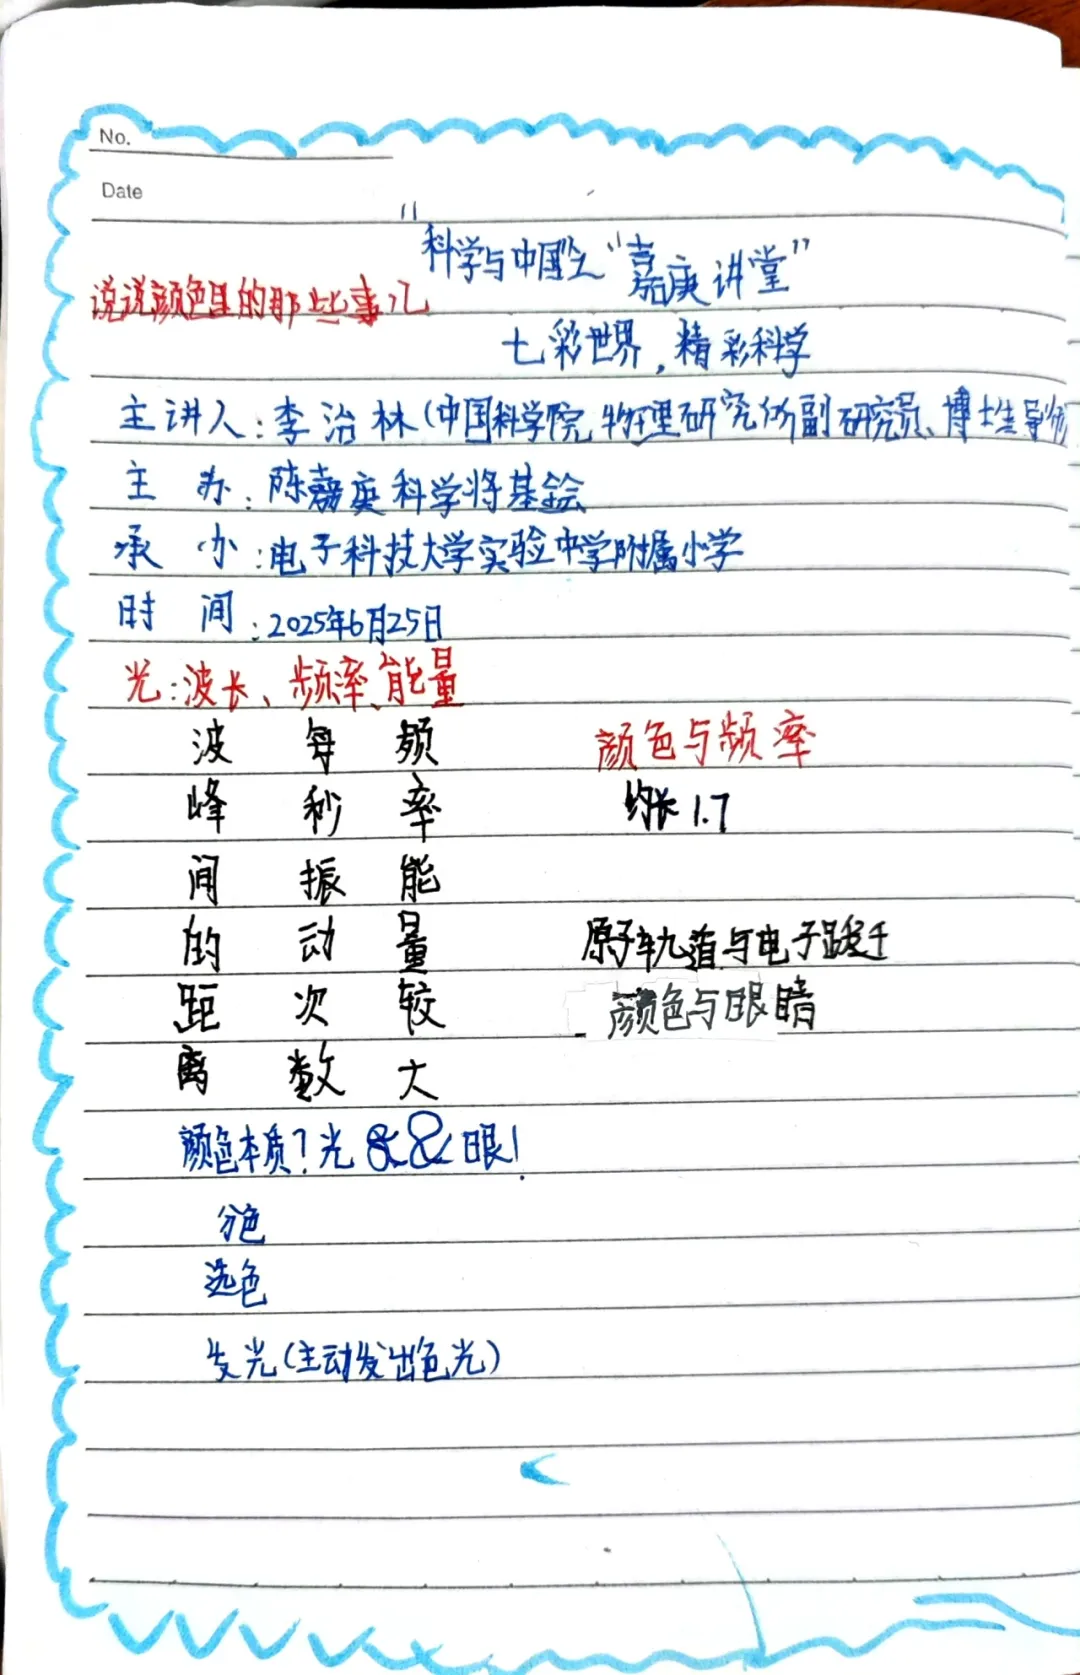 No.
Date
"科学与中国"之"嘉庚讲堂"
说说颜色里的那些事儿
七彩世界,精彩科学
主讲人:李治林(中国科学院物理研究所副研究员、博士生导师
主 办:陈嘉庚科学奖基金会
承 办:电子科技大学实验中学附属小学
时 间:2025年6月25日
光:波长、频率、能量
波峰间的距离
每秒振动次数
频率能量较大
颜色与频率
约长1.7
原子轨道与电子跃迁
颜色与眼睛
颜色本质?光&&眼!
分色
选色
发光(主动发出色光)